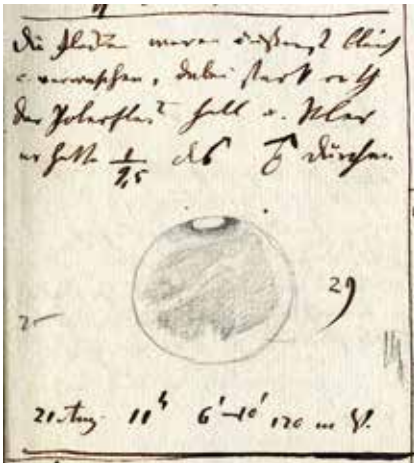 Die Flecken waren äußerst bleich
verwaschen, dabei stark roth
Der Polarfleck hell u. klar
er hatte des Durchm.
29
21. Aug. 11ʰ 6'-10' 120 m V.